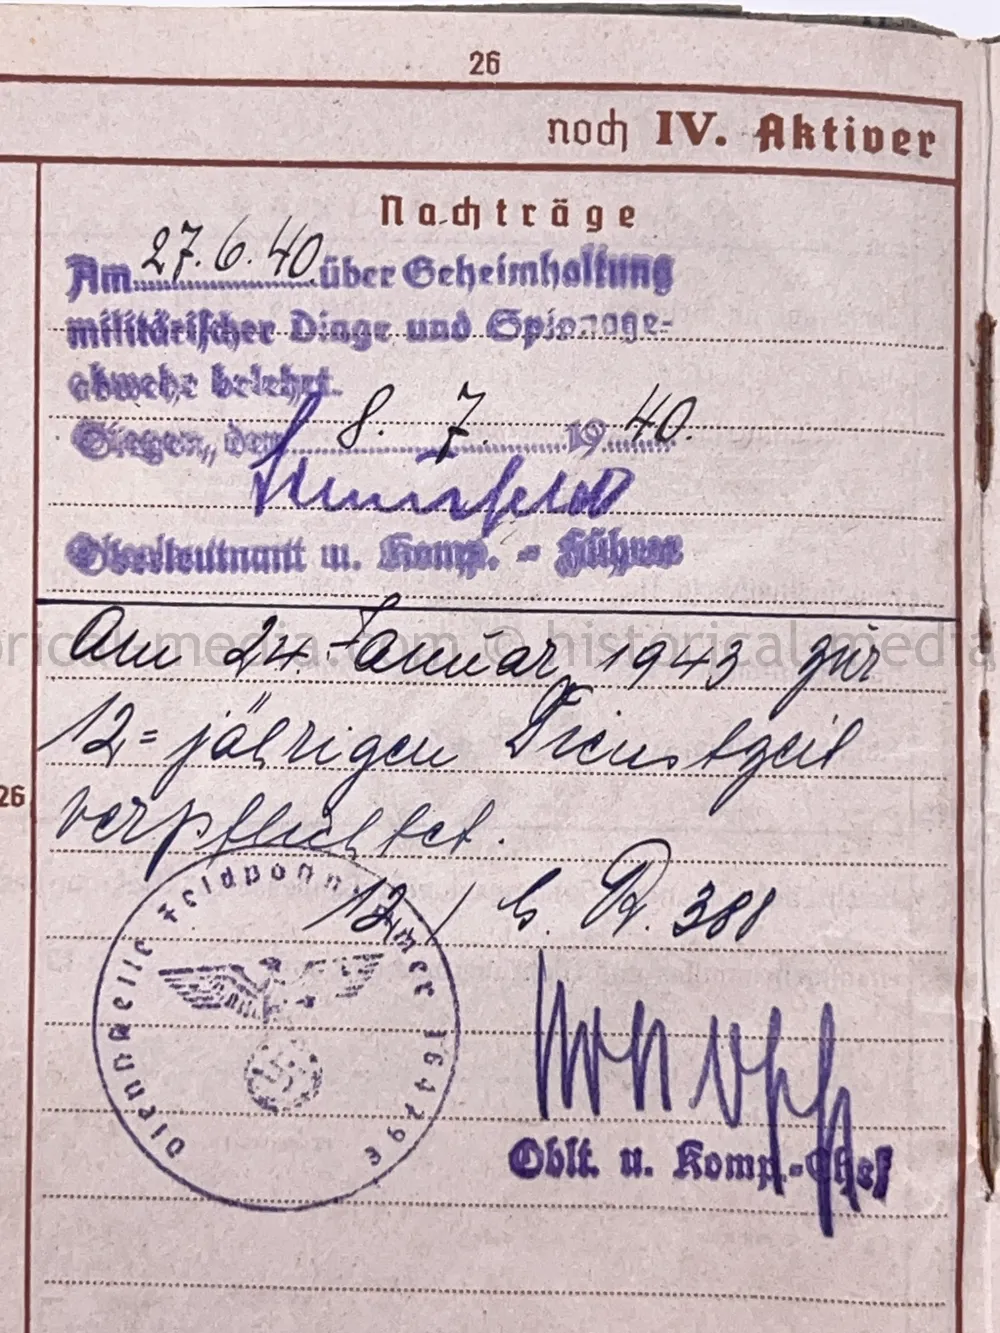 26
noch IV. Aktiver
Nachträge
Am 27.6.40 über Geheimhaltung
militärischer Dinge und Spionage-
abwehr belehrt.
Siegen, den 8. 7. 19 40.
Oberleutnant u. Komp. - Führer
Am 24. Januar 1943 zur
12=jährigen Dienstzeit
verpflichtet.
26
12./ G. R. 388
Dienststelle Feldpostnummer 16479E
Oblt. u. Komp.-Chef
historical-media.com © historical-media